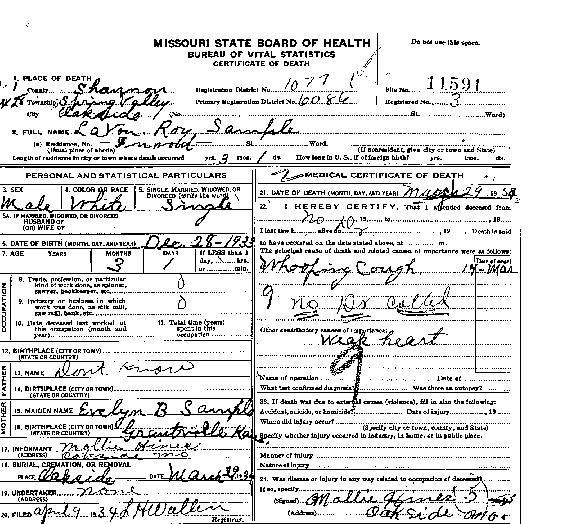 MISSOURI STATE BOARD OF HEALTH
BUREAU OF VITAL STATISTICS
CERTIFICATE OF DEATH
Do not use this space.
1. PLACE OF DEATH
County Shannon Registration District No. 1077 File No. 11591
Township Spring Valley Primary Registration District No. 6086 Registered No. 3
City Oakside No. St. Ward)
2. FULL NAME LaVon Roy Sample
(a) Residence, No. St. Ward.
(Usual place of abode) (If nonresident, give city or town and State)
Length of residence in city or town where death occurred yrs. 3 mos. 1 ds. How long in U. S., if of foreign birth? yrs. mos. ds.
PERSONAL AND STATISTICAL PARTICULARS
3. SEX 4. COLOR OR RACE 5. SINGLE, MARRIED, WIDOWED, OR DIVORCED (write the word)
Male White Single
5A. IF MARRIED, WIDOWED, OR DIVORCED
HUSBAND OF
(OR) WIFE OF
6. DATE OF BIRTH (MONTH, DAY, AND YEAR) Dec 28-1933
7. AGE YEARS MONTHS DAYS If LESS than 1 day, hrs. or min.
3 1
OCCUPATION
8. Trade, profession, or particular kind of work done, as spinner, sawyer, bookkeeper, etc. 0
9. Industry or business in which work was done, as silk mill, saw mill, bank, etc. 0
10. Date deceased last worked at this occupation (month and year)
11. Total time (years) spent in this occupation
12. BIRTHPLACE (CITY OR TOWN)
(STATE OR COUNTRY)
FATHER
13. NAME Dont Know
14. BIRTHPLACE (CITY OR TOWN)
(STATE OR COUNTRY)
MOTHER
15. MAIDEN NAME Evelyn B Sample
16. BIRTHPLACE (CITY OR TOWN)
(STATE OR COUNTRY)
17. INFORMANT Mollie Hines
(ADDRESS) Oakside Mo
18. BURIAL, CREMATION, OR REMOVAL
PLACE Oakside DATE March
19. UNDERTAKER none
(ADDRESS)
20. FILED April 9 1934 L H Wallen
Registrar.
MEDICAL CERTIFICATE OF DEATH
21. DATE OF DEATH (MONTH, DAY, AND YEAR) March 29, 1934
22. I HEREBY CERTIFY, That I attended deceased from
No Dr 19 to , 19
I last saw h alive on , 19 Death is said
to have occurred on the date stated above, at m.
The principal cause of death and related causes of importance were as follows:
Date of onset
Whooping Cough 14-Mar
9 no Dr called
Other contributory causes of importance:
Weak heart
Name of operation Date of
What test confirmed diagnosis? Was there an autopsy?
23. If death was due to external causes (violence), fill in also the following:
Accident, suicide, or homicide? Date of injury , 19
Where did injury occur?
(Specify city or town, county, and State)
Specify whether injury occurred in industry, in home, or in public place.
Manner of injury
Nature of injury
24. Was disease or injury in any way related to occupation of deceased?
If so, specify
(Signed) Mollie Hines
(Address) Oakside Mo.